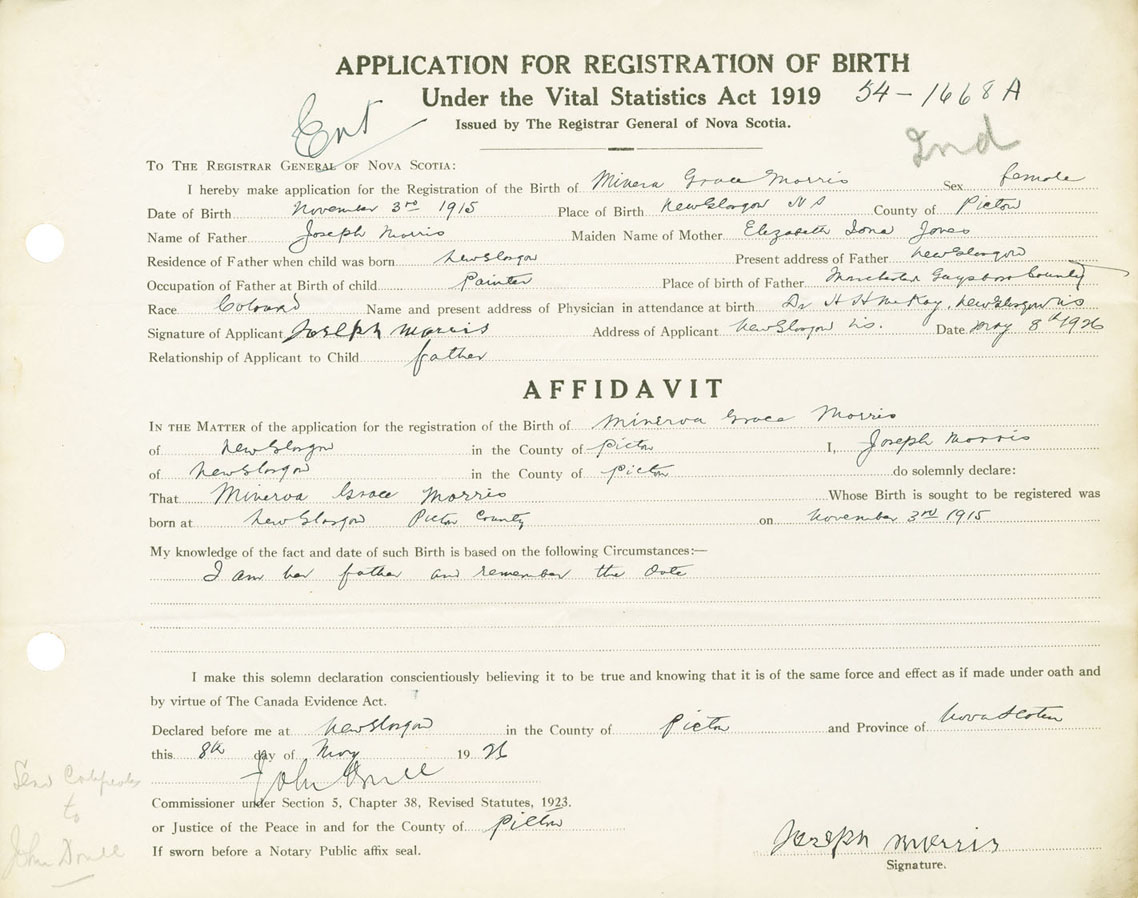 APPLICATION FOR REGISTRATION OF BIRTH
Under the Vital Statistics Act 1919 54-1668A
Issued by The Registrar General of Nova Scotia.
Ent
Ind
TO THE REGISTRAR GENERAL OF NOVA SCOTIA:
I hereby make application for the Registration of the Birth of Minera Grace Morris Sex female
Date of Birth November 3rd 1915 Place of Birth New Glasgow NS County of Pictou
Name of Father Joseph Morris Maiden Name of Mother Elizabeth Iona Jones
Residence of Father when child was born New Glasgow Present address of Father New Glasgow
Occupation of Father at Birth of child Painter Place of birth of Father Manchester Guysboro County
Race Coloured Name and present address of Physician in attendance at birth Dr H H McKay, New Glasgow NS
Signature of Applicant Joseph Morris Address of Applicant New Glasgow NS. Date May 8th 1926
Relationship of Applicant to Child father
AFFIDAVIT
IN THE MATTER of the application for the registration of the Birth of Minerva Grace Morris
of New Glasgow in the County of Pictou I, Joseph Morris
of New Glasgow in the County of Pictou do solemnly declare:
That Minerva Grace Morris Whose Birth is sought to be registered was
born at New Glasgow Pictou County on November 3rd 1915
My knowledge of the fact and date of such Birth is based on the following Circumstances:—
I am her father and remember the date
I make this solemn declaration conscientiously believing it to be true and knowing that it is of the same force and effect as if made under oath and
by virtue of The Canada Evidence Act.
Declared before me at New Glasgow in the County of Pictou and Province of Nova Scotia
this 8th day of May 1926
John
Commissioner under Section 5, Chapter 38, Revised Statutes, 1923.
or Justice of the Peace in and for the County of Pictou
If sworn before a Notary Public affix seal.
Joseph Morris
Signature.
Send Certificate
to
John